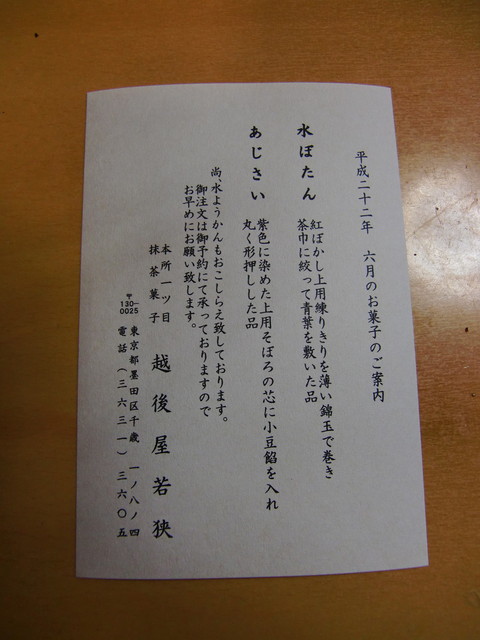 平成二十二年 六月のお菓子のご案内
水ぼたん
紅ぼかし上用練りきりを薄い錦玉で巻き
茶巾に絞って青葉を敷いた品
あじさい
紫色に染めた上用そぼろの芯に小豆餡を入れ
丸く形押しした品
尚、水ようかんもおこしらえ致しております。
御注文は御予約にて承っておりますので
お早めにお願い致します。
本所一ツ目
抹茶菓子
越後屋若狭
〒130-0025
東京都墨田区千歳 一ノ八ノ四
電話(三六三一)三六〇五